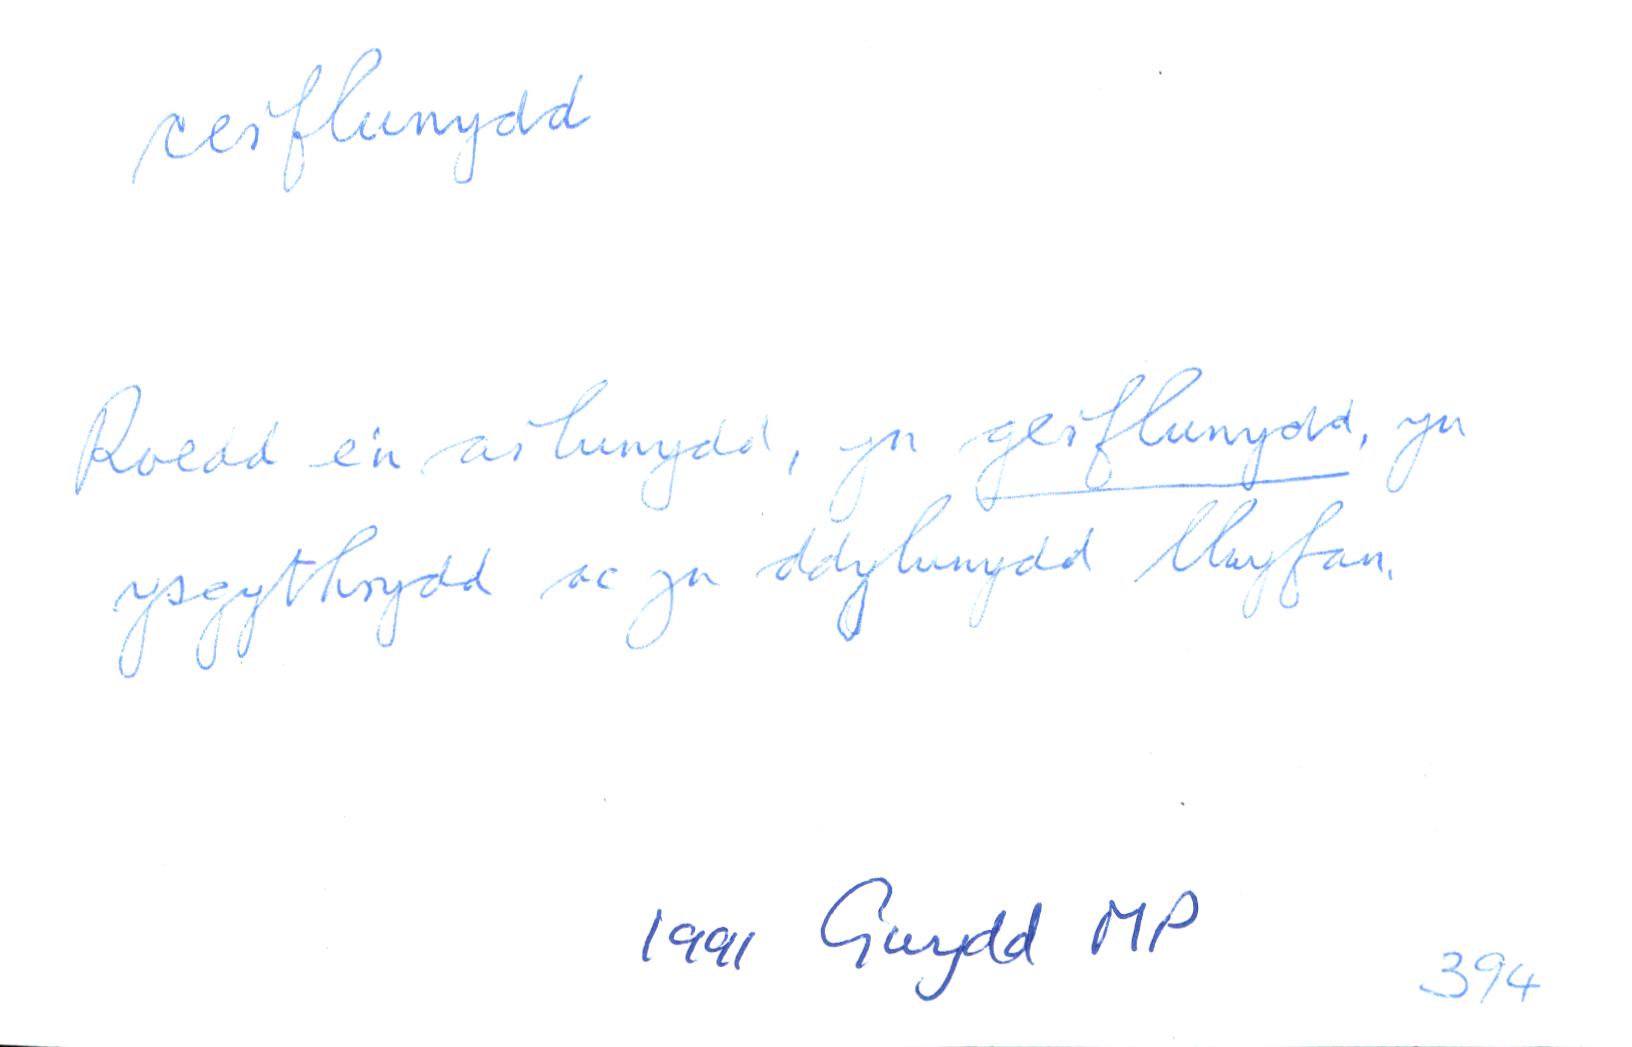 cerflunydd
Roedd e'n arlunydd, yn gerflunydd, yn
ysgythrydd ac yn ddylunydd llwyfan.
1991 Gwydd MP
394